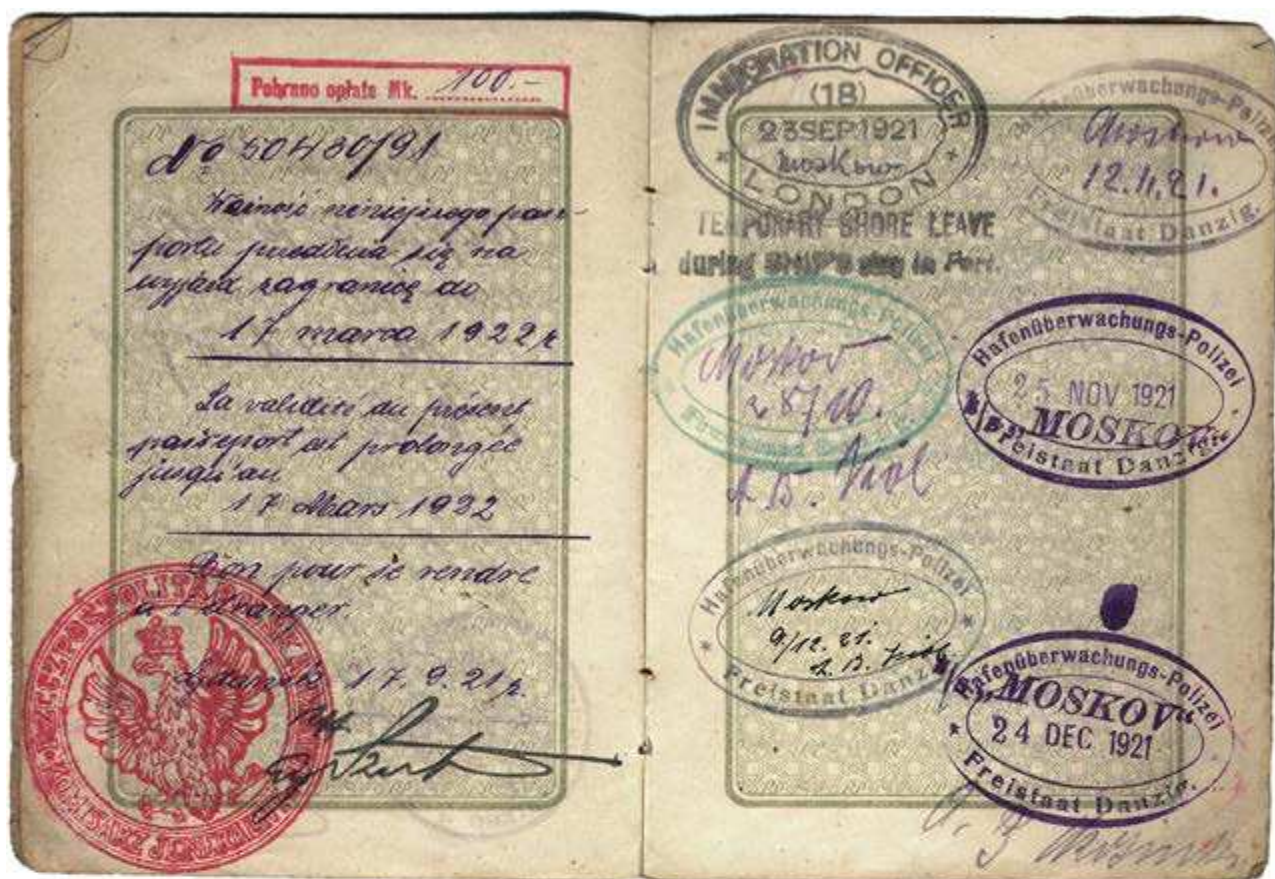 Pobrano opłatę Mk. 100.-
No 50430/91
Ważność niniejszego pasz-
portu przedłuża się na
wyjazd zagranicę do
17 marca 1922 r
La validité du présent
passeport est prolongée
jusqu'au
17 Mars 1922
Bon pour se rendre
a l'étranger.
17.9.21 r.
RZECZPOSPOLITA POLSKA
IMMIGRATION OFFICER
(18)
23 SEP 1921
Moskow
LONDON
TEMPORARY SHORE LEAVE
during SHIP'S stay in Port.
Hafenüberwachungs-Polizei
12.11.21.
Freistaat Danzig.
Hafenüberwachungs-Polizei
Moskov
28/10.
Hafenüberwachungs-Polizei
25 NOV 1921
MOSKOV
Freistaat Danzig.
Hafenüberwachungs-Polizei
Moskow
9/12.21.
Freistaat Danzig
Hafenüberwachungs-Polizei
"MOSKOV"
24 DEC 1921
Freistaat Danzig.